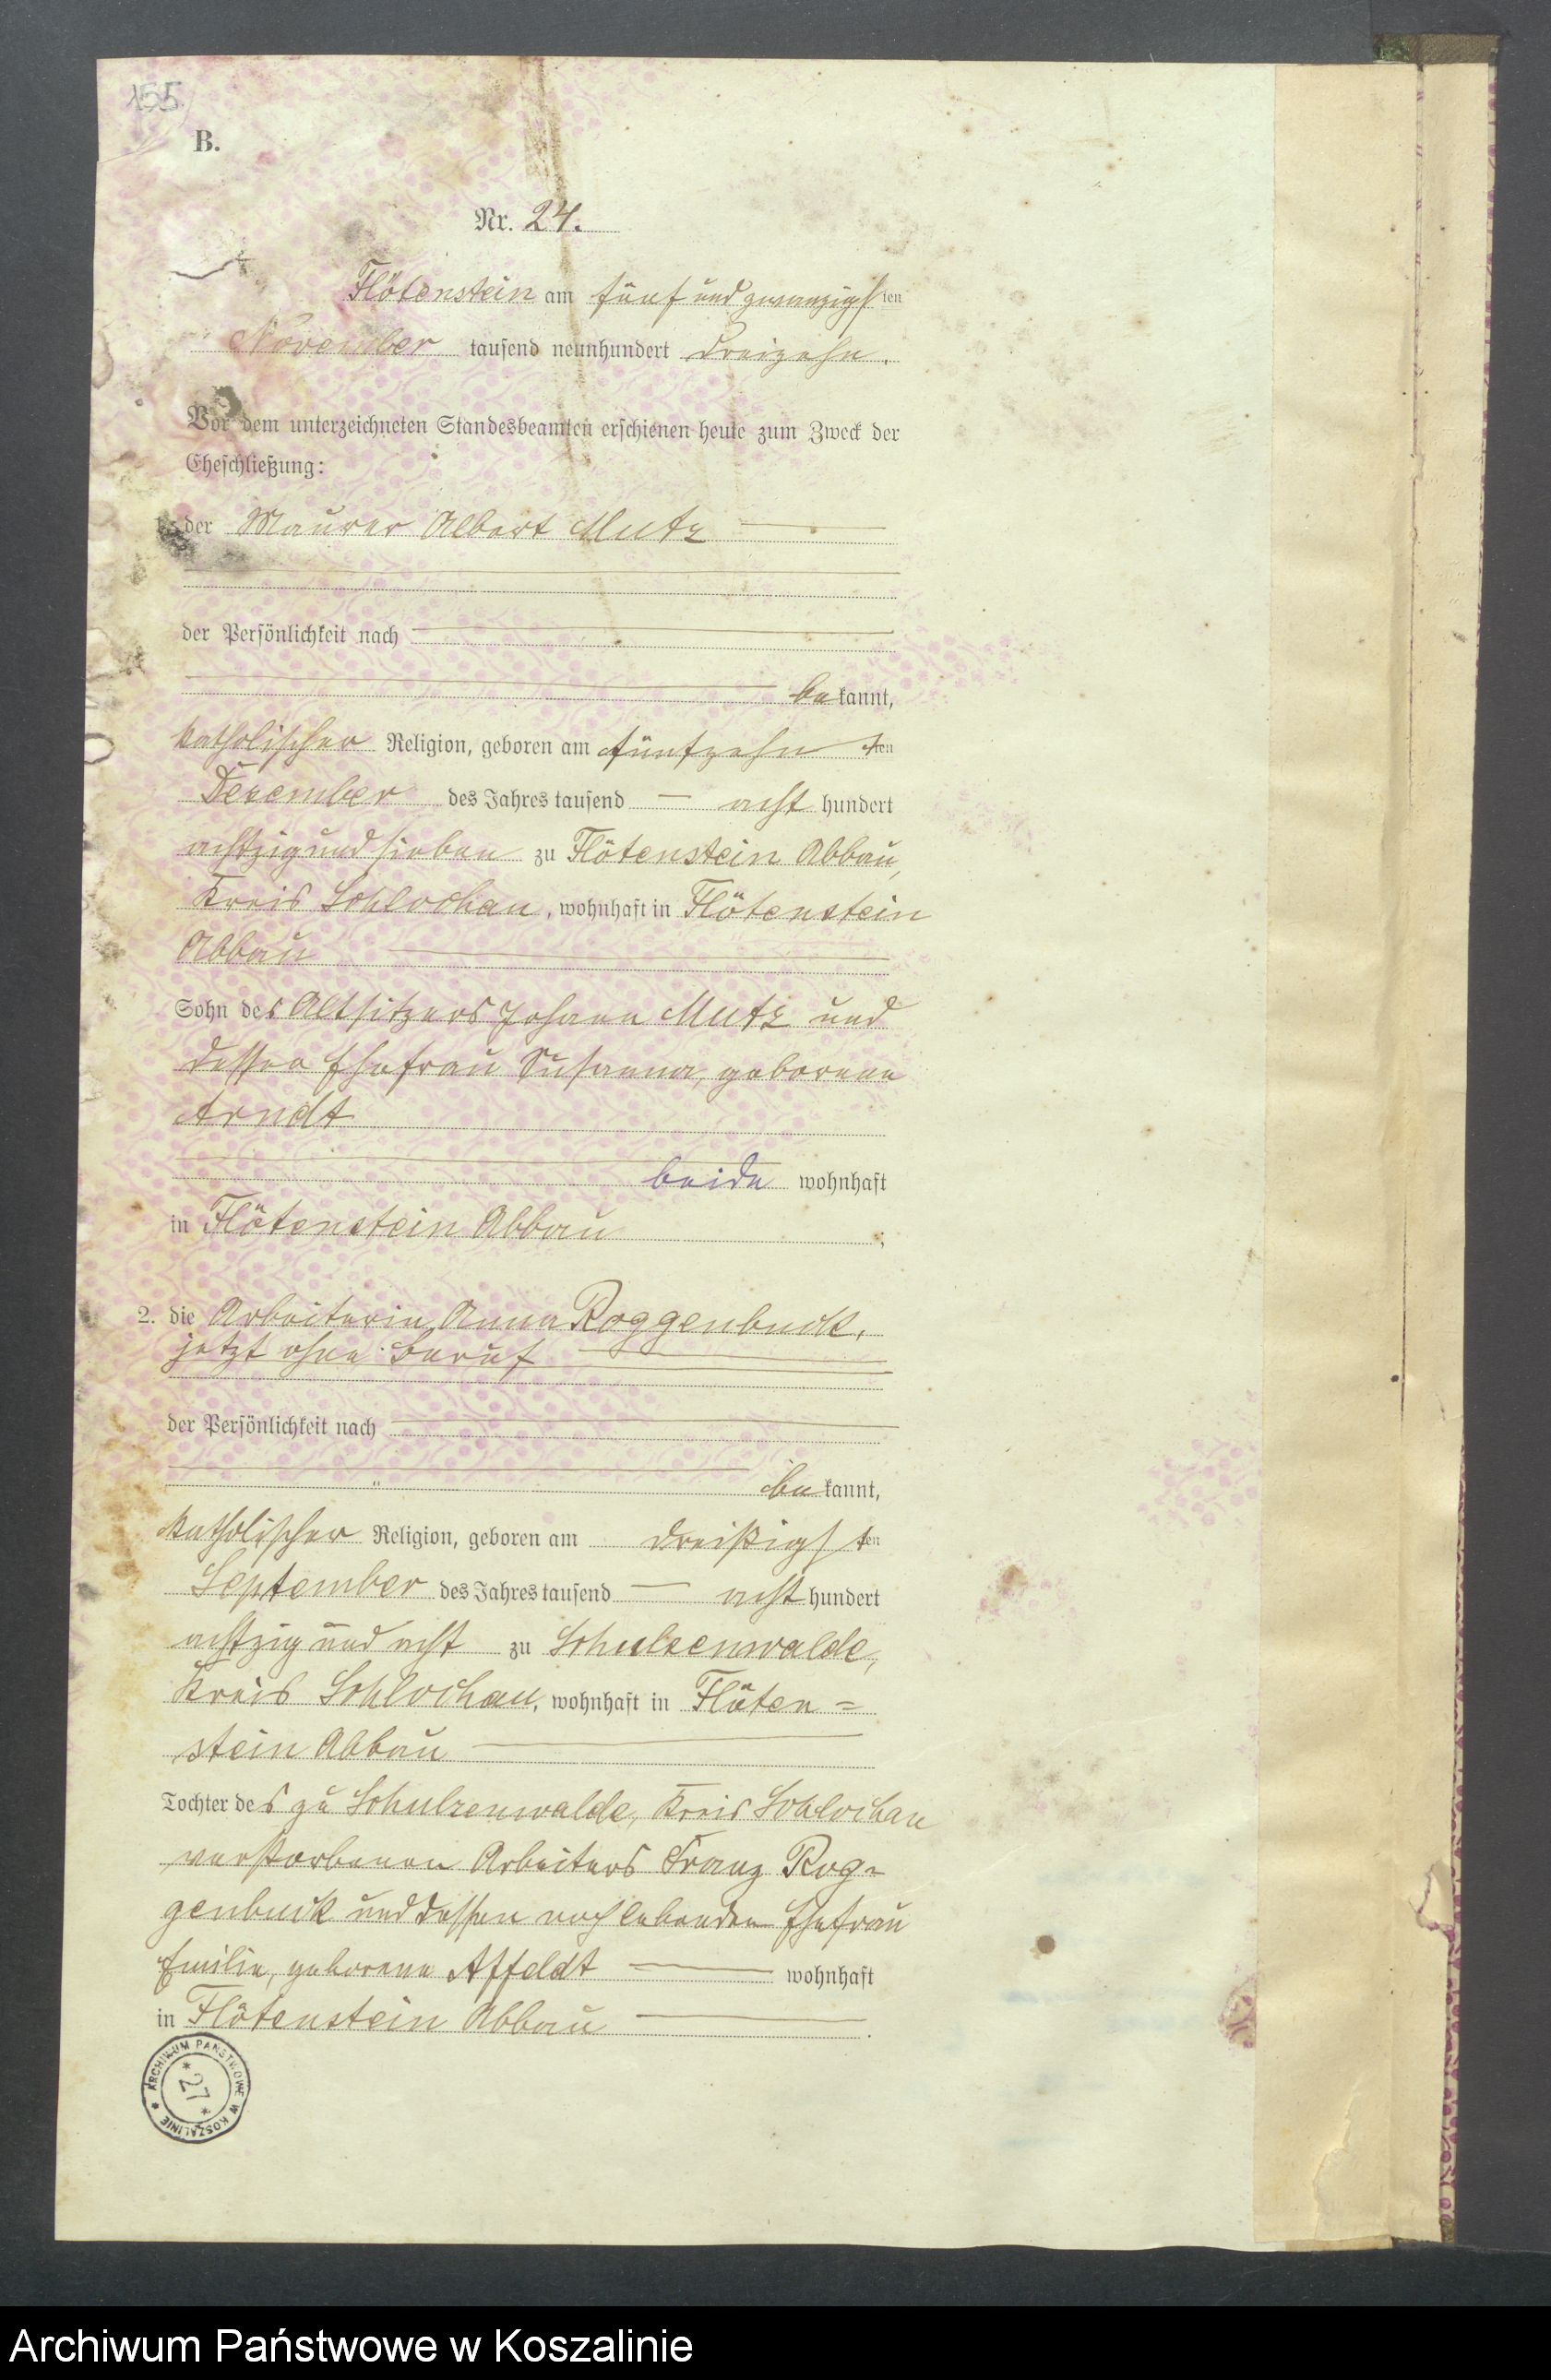 155
B.
Nr. 24.
Flötenstein am fünf und zwanzigsten
November tausend neunhundert dreizehn.
Vor dem unterzeichneten Standesbeamten erschienen heute zum Zweck der
Eheschließung:
1. der Maurer Albert Mutz
der Persönlichkeit nach
bekannt,
katholischer Religion, geboren am fünfzehnten
Dezember des Jahres tausend acht hundert
achtzig und sieben zu Flötenstein Abbau,
Kreis Schlochau, wohnhaft in Flötenstein
Abbau
Sohn des Altsitzers Johann Mutz und
dessen Ehefrau Susanna, geborene
Arndt
beide wohnhaft
in Flötenstein Abbau ;
2. die Arbeiterin Anna Roggenbuck,
jetzt ohne Beruf
der Persönlichkeit nach
bekannt,
katholischer Religion, geboren am dreißigsten
September des Jahres tausend acht hundert
achtzig und acht zu Schulzenwalde,
Kreis Schlochau, wohnhaft in Flöten=
stein Abbau
Tochter des zu Schulzenwalde, Kreis Schlochau
verstorbenen Arbeiters Franz Rog=
genbuck und dessen noch lebenden Ehefrau
Emilie, geborene Affeldt wohnhaft
in Flötenstein Abbau .
* ARCHIWUM PAŃSTWOWE W KOSZALINIE
* 27 *
Archiwum Państwowe w Koszalinie